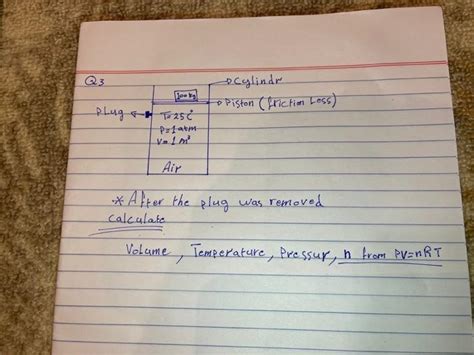 Q3
→ Cylindr
300kg
→ Piston (friction Loss)
plug
T=25C°
P=1 atm
V=1 m³
Air
* After the plug was removed
calculate
Volume, Temperature, Pressur, n from PV=nRT